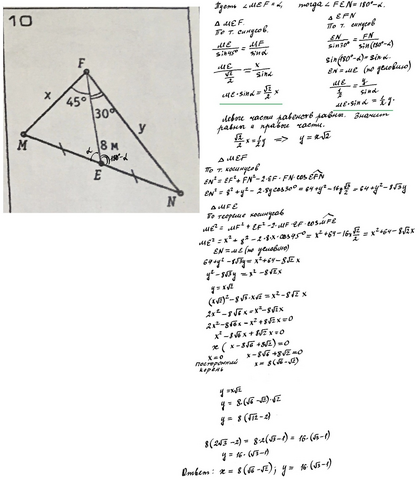 10
F
x
45°
30°
y
M
8 м
α
180-α
E
N
Пусть ∠MEF=α, тогда ∠FEN=180°-α.
△ MEF.
По т. синусов.
ME/sin45° = MF/sinα
ME/(√2/2) = x/sinα
ME·sinα = √2/2 x
△ EFN
По т. синусов
EN/sin30° = FN/sin(180°-α)
sin(180°-α)=sinα.
EN=ME (по условию)
ME/(1/2) = y/sinα
ME·sinα = 1/2 y.
Левые части равенств равны. Значит
равны и правые части.
√2/2 x = 1/2 y => y = x√2.
△ MEF
По т. косинусов
EN² = EF² + FN² - 2·EF·FN·cos EFN
EN² = 8² + y² - 2·8y cos30° = 64+y²-16y √3/2 = 64+y²-8√3y
△ MFE
По теореме косинусов
ME² = MF² + EF² - 2·MF·EF·cos MFE
ME² = x² + 8² - 2·8·x·cos45° = x²+64-16x √2/2 = x²+64-8√2x
EN=ME (по условию)
64+y²-8√3y = x²+64-8√2x
y²-8√3y = x²-8√2x
y=x√2
(x√2)²-8√3·x√2 = x²-8√2x
2x²-8√6x = x²-8√2x
2x²-8√6x-x²+8√2x=0
x²-8√6x+8√2x=0
x(x-8√6+8√2)=0
x=0 x-8√6+8√2=0
посторонний x=8(√6-√2)
корень
y=x√2
y = 8·(√6-√2)·√2
y = 8(√12-2)
8(2√3-2) = 8·2(√3-1) = 16·(√3-1)
y = 16·(√3-1)
Ответ: x = 8(√6-√2); y = 16(√3-1)